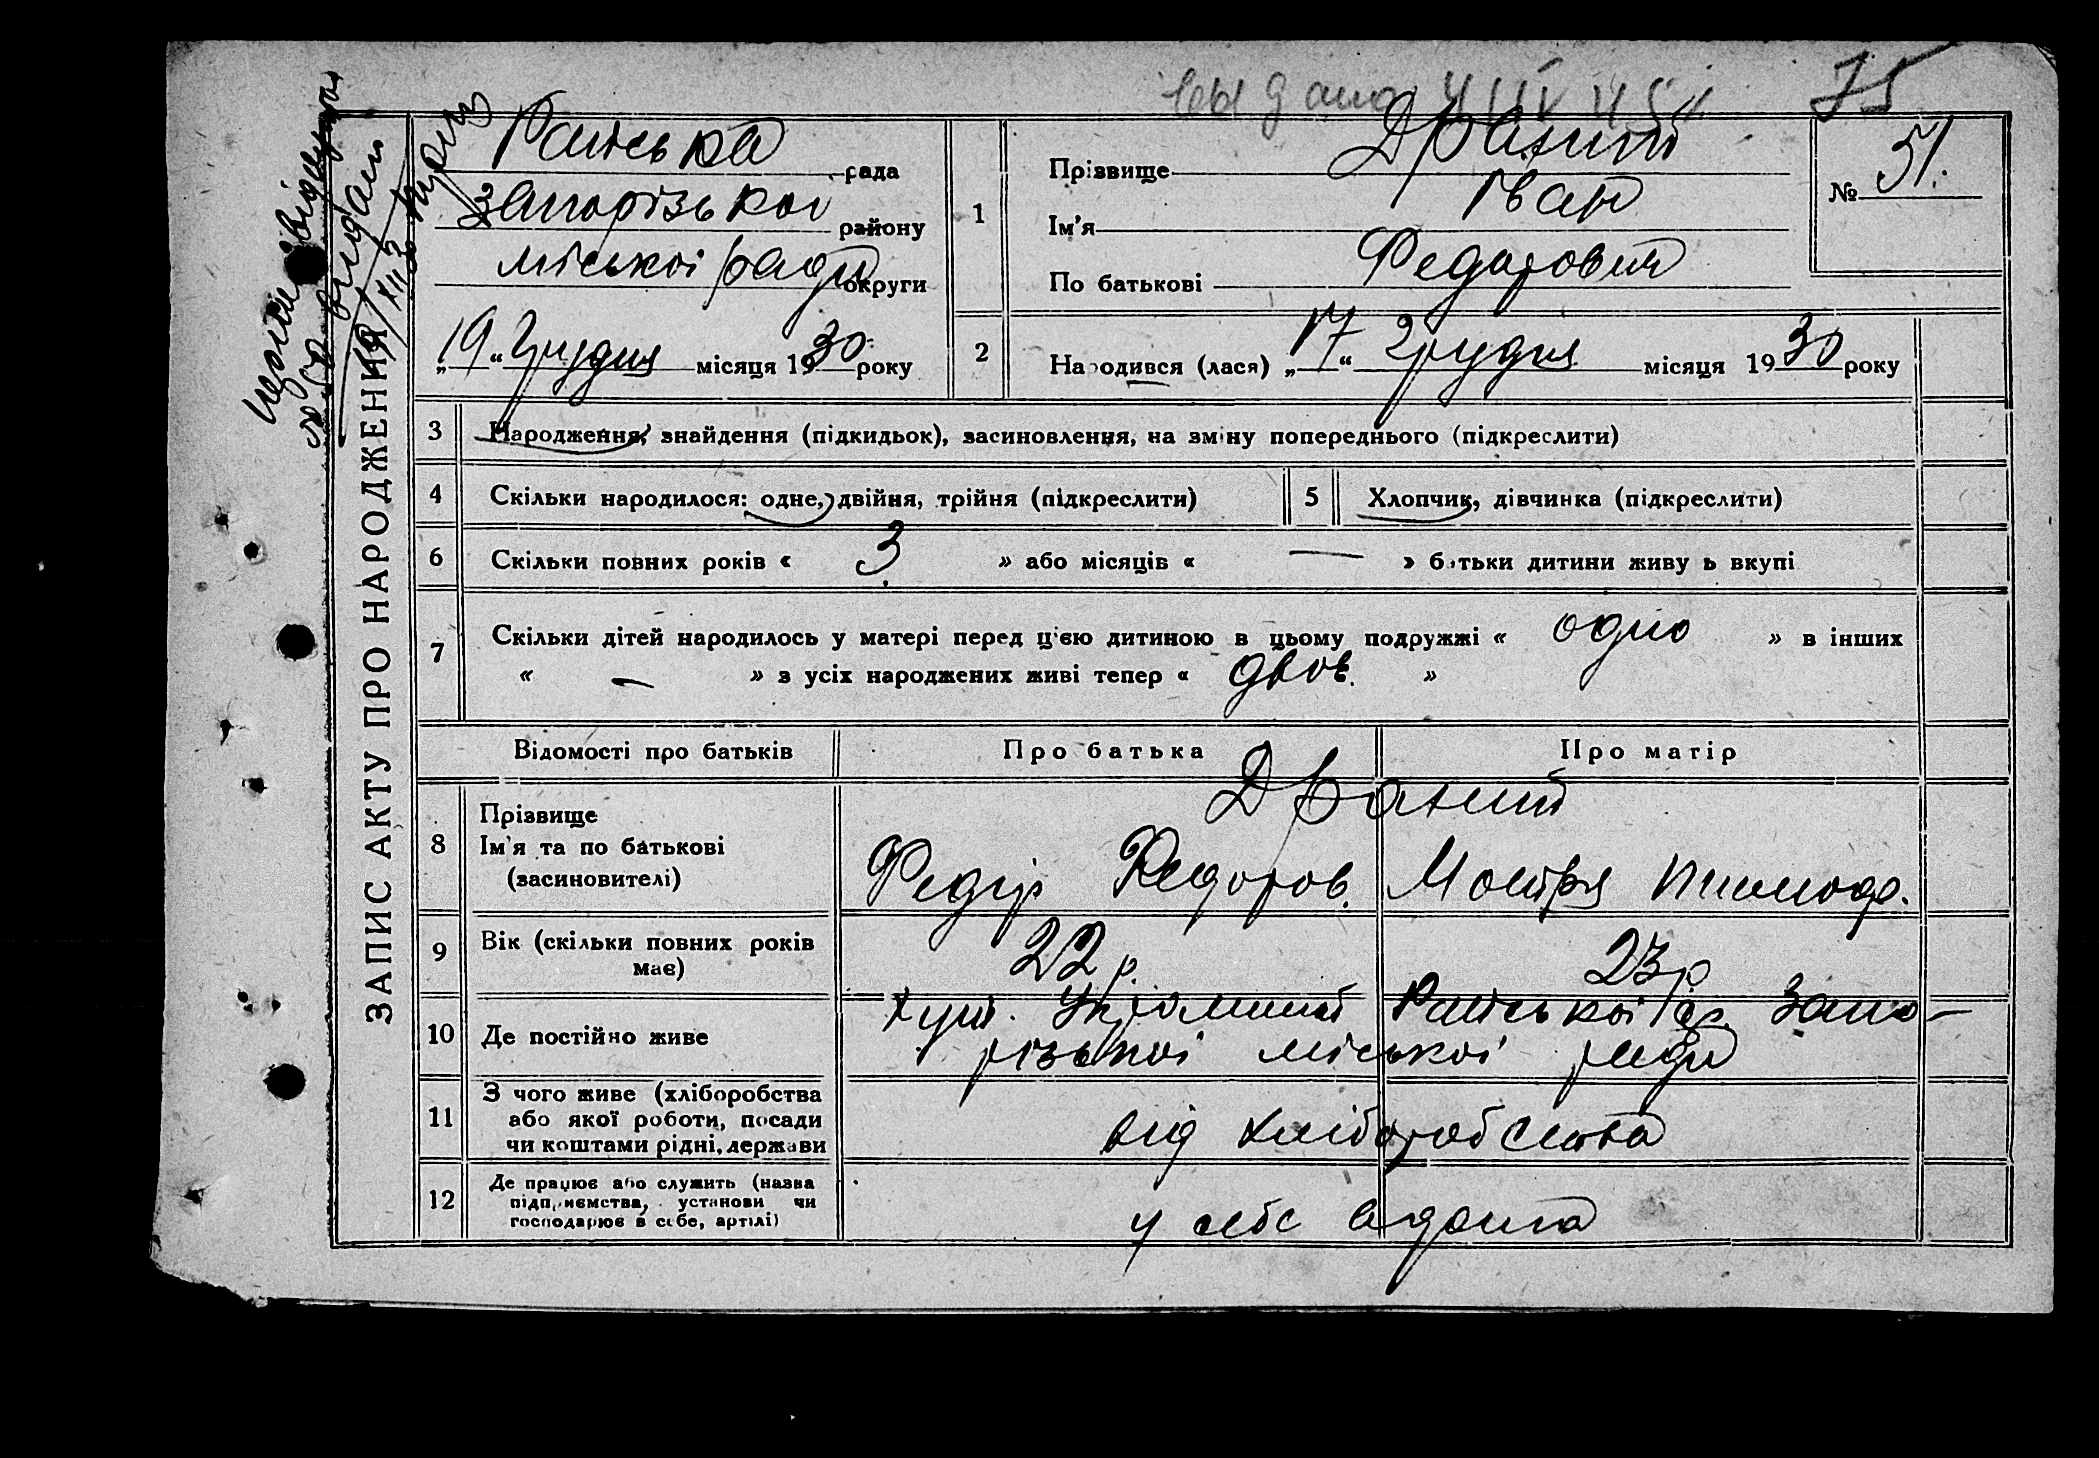 выдана
75
ЗАПИС АКТУ ПРО НАРОДЖЕННЯ
Раиська рада
Запорізької району
міської ради округи
„19“ Грудня місяця 1930 року
1
Прізвище Драний
Ім'я Іван
По батькові Федорович
№ 51.
2
Народився (лася) „17“ Грудня місяця 1930 року
3 Народження, знайдення (підкидьок), засиновлення, на зміну попереднього (підкреслити)
4 Скільки народилося: одне, двійня, трійня (підкреслити)
5 Хлопчик, дівчинка (підкреслити)
6 Скільки повних років « 3 » або місяців « — » батьки дитини живуть вкупі
7 Скільки дітей народилось у матері перед цією дитиною в цьому подружжі « одно » в інших
« — » з усіх народжених живі тепер « двоє »
Відомості про батьків Про батька Про матір
8 Прізвище
Ім'я та по батькові
(засиновителі)
Драний
Федір Федоров. Мотря Тимоф.
9 Вік (скільки повних років має)
22 р. 23 р
10 Де постійно живе
хут. Раиської с/р. Запо-
різької міської ради
11 З чого живе (хліборобства
або якої роботи, посади
чи коштами рідні, держави
від хліборобства
12 Де працює або служить (назва
підприємства, установи чи
господарює в себе, артілі)
у себе вдома